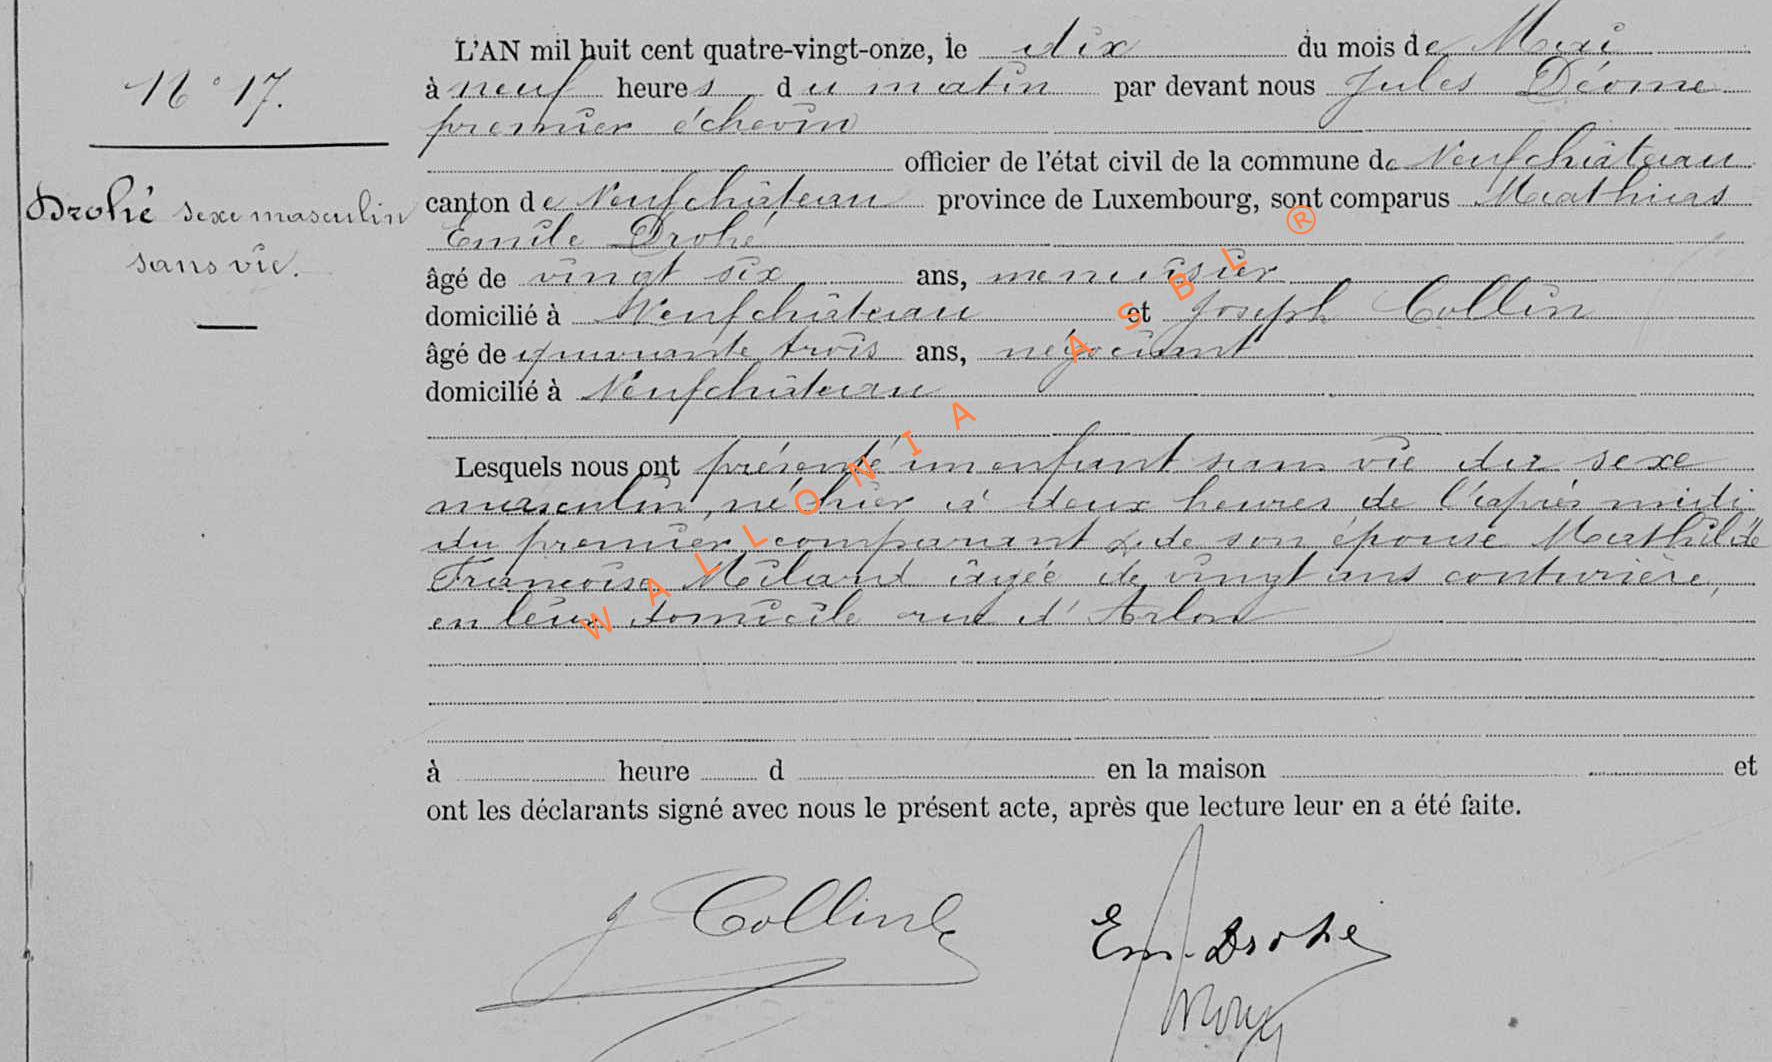 N° 17.
Drohé sexe masculin
sans vie.
L'AN mil huit cent quatre-vingt-onze, le dix du mois de Mai
à neuf heures du matin par devant nous Jules Déome
premier échevin
officier de l'état civil de la commune de Neufchâteau
canton de Neufchâteau province de Luxembourg, sont comparus Mathias
Emile Drohé
âgé de vingt six ans, menuisier
domicilié à Neufchâteau et Joseph Collin
âgé de quarante trois ans, négociant
domicilié à Neufchâteau
Lesquels nous ont présenté un enfant sans vie du sexe
masculin, né hier à deux heures de l'après midi
du premier comparant & de son épouse Mathilde
Françoise Milard âgée de vingt ans couturière,
en leur domicile rue d'Arlon
à heure d en la maison et
ont les déclarants signé avec nous le présent acte, après que lecture leur en a été faite.
J Collin
Em. Drohé
WALLONIA ASBL ®